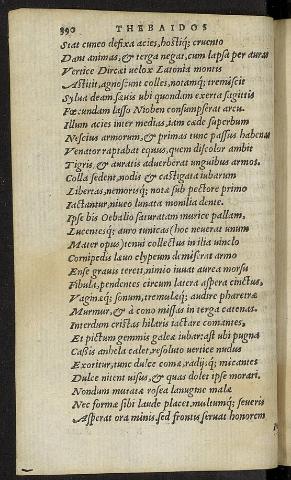 390 THEBAIDOS
Stat cuneo defixa acies, hostiq; cruento
Dant animas, & terga negat, cum lapsa per auras
Vertice Dircæi uelox Latonia montis
Astitit, agnoscunt colles, notamq; tremiscit
Sylua deam, sæuis ubi quondam exerta sagittis
Fœcundam lasso Nioben consumpserat arcu.
Illum acies inter medias, iam cæde superbum
Nescius armorum, & primas tunc passus habenas
Venator raptabat equus, quem discolor ambit
Tigris, & auratis aduerberat unguibus armos.
Colla sedent, nodis & castigata iubarum
Libertas, nemorisq; notæ sub pectore primo
Iactantur, niueo lunata monilia dente.
Ipse bis Oebalio saturatam murice pallam,
Lucentesq; auro tunicas (hoc neuerat unum
Mater opus) tenui collectus in ilia uinclo
Cornipedis læuo clypeum demiserat armo
Ense grauis tereti, nimio iuuat aurea morsu
Fibula, pendentes circum latera aspera cinctus,
Vaginæq; sonum, tremulæq; audire pharetræ
Murmur, & à cono missas in terga catenas.
Interdum cristas hilaris iactare comantes,
Et pictum gemmis galeæ iubar: ast ubi pugna
Cassis anhela calet, resoluto uertice nudus
Exoritur, tunc dulce comæ, radijsq; micantes
Dulce nitent uisus, & quas dolet ipse morari,
Nondum mutatæ rosea lanugine malæ
Nec formæ sibi laude placet, multumq; seueris
Asperat ora minis, sed frontis seruat honorem